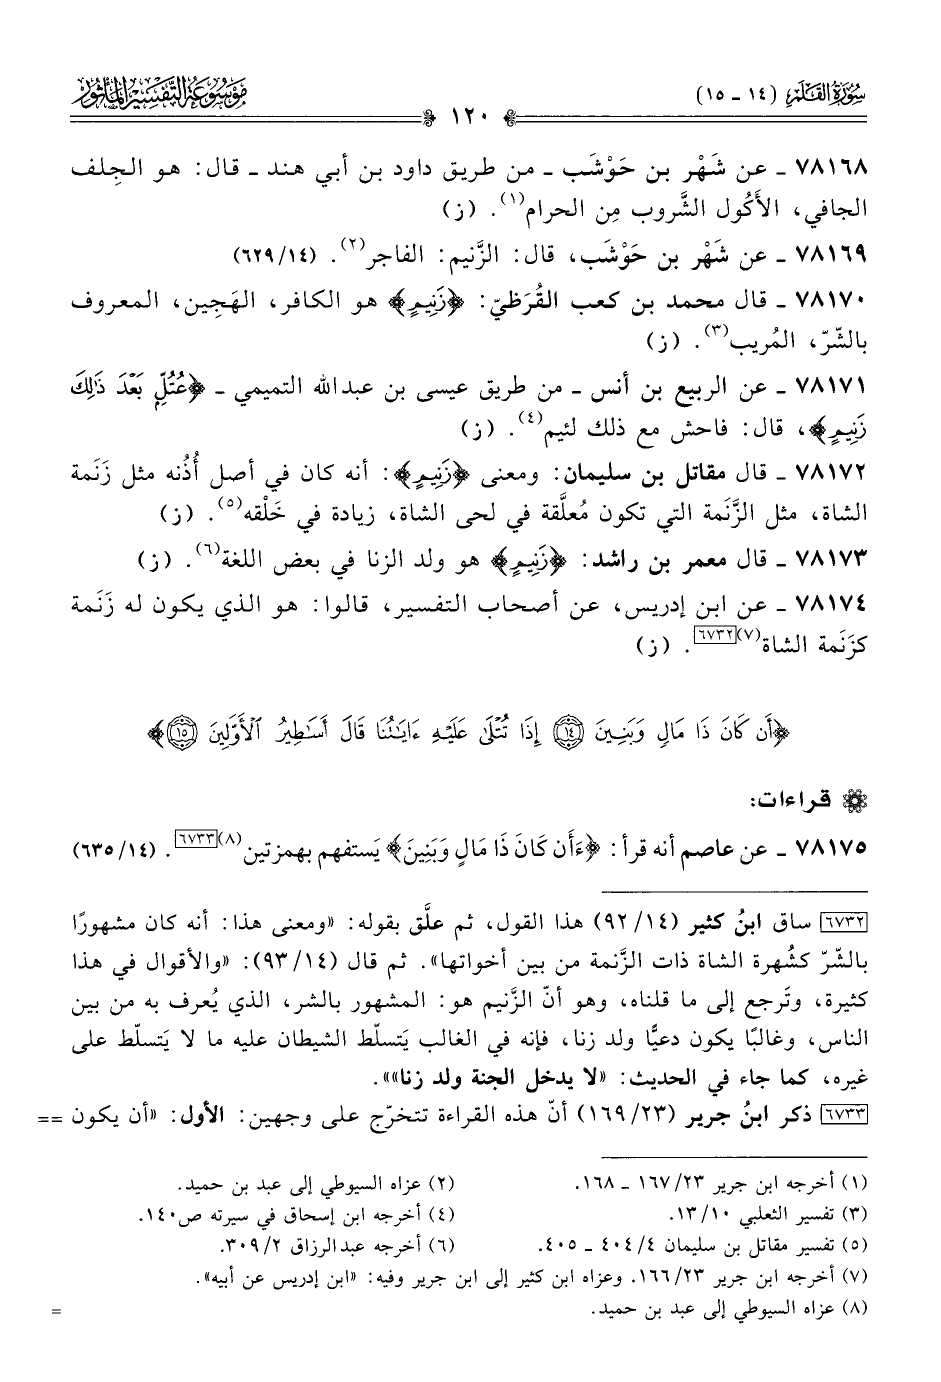 سُورَةُ القَلَمِ (١٤ ـ ١٥)
١٢٠
مَوْسُوعَة التَّفْسِير المَأْثُور
٧٨١٦٨ ـ عن شَهْر بن حَوْشَب ـ من طريق داود بن أبي هند ـ قال: هو الجِلف
الجافي، الأَكُول الشَّروب مِن الحرام(١). (ز)
٧٨١٦٩ ـ عن شَهْر بن حَوْشَب، قال: الزَّنيم: الفاجر(٢). (١٤/ ٦٢٩)
٧٨١٧٠ ـ قال محمد بن كعب القُرَظيّ: ﴿زَنِيمٍ﴾ هو الكافر، الهَجِين، المعروف
بالشّرّ، المُريب(٣). (ز)
٧٨١٧١ ـ عن الربيع بن أنس ـ من طريق عيسى بن عبدالله التميمي ـ ﴿عُتُلٍّ بَعْدَ ذَٰلِكَ
زَنِيمٍ﴾، قال: فاحش مع ذلك لئيم(٤). (ز)
٧٨١٧٢ ـ قال مقاتل بن سليمان: ومعنى ﴿زَنِيمٍ﴾: أنه كان في أصل أُذُنه مثل زَنَمة
الشاة، مثل الزَّنَمة التي تكون مُعلَّقة في لحى الشاة، زيادة في خَلْقه(٥). (ز)
٧٨١٧٣ ـ قال معمر بن راشد: ﴿زَنِيمٍ﴾ هو ولد الزنا في بعض اللغة(٦). (ز)
٧٨١٧٤ ـ عن ابن إدريس، عن أصحاب التفسير، قالوا: هو الذي يكون له زَنَمة
كزَنَمة الشاة(٧)[٦٧٣٢]. (ز)
﴿أَن كَانَ ذَا مَالٍ وَبَنِينَ ١٤ إِذَا تُتْلَىٰ عَلَيْهِ ءَايَـٰتُنَا قَالَ أَسَـٰطِيرُ ٱلْأَوَّلِينَ ١٥﴾
قراءات:
٧٨١٧٥ ـ عن عاصم أنه قرأ: ﴿ءَأَن كَانَ ذَا مَالٍ وَبَنِينَ﴾ يَستفهم بهمزتين(٨)[٦٧٣٣]. (١٤/ ٦٣٥)
[٦٧٣٢] ساق ابنُ كثير (١٤/ ٩٢) هذا القول، ثم علَّق بقوله: «ومعنى هذا: أنه كان مشهورًا
بالشّرّ كشُهرة الشاة ذات الزَّنمة من بين أخواتها». ثم قال (١٤/ ٩٣): «والأقوال في هذا
كثيرة، وتَرجع إلى ما قلناه، وهو أنّ الزَّنيم هو: المشهور بالشر، الذي يُعرف به من بين
الناس، وغالبًا يكون دعيًّا ولد زنا، فإنه في الغالب يَتسلّط الشيطان عليه ما لا يَتسلّط على
غيره، كما جاء في الحديث: «لا يدخل الجنة ولد زنا»».
[٦٧٣٣] ذكر ابنُ جرير (٢٣/ ١٦٩) أنّ هذه القراءة تتخرّج على وجهين: الأول: «أن يكون ==
(١) أخرجه ابن جرير ٢٣/ ١٦٧ ـ ١٦٨.
(٢) عزاه السيوطي إلى عبد بن حميد.
(٣) تفسير الثعلبي ١٠/ ١٣.
(٤) أخرجه ابن إسحاق في سيرته ص١٤٠.
(٥) تفسير مقاتل بن سليمان ٤/ ٤٠٤ ـ ٤٠٥.
(٦) أخرجه عبدالرزاق ٢/ ٣٠٩.
(٧) أخرجه ابن جرير ٢٣/ ١٦٦. وعزاه ابن كثير إلى ابن جرير وفيه: «ابن إدريس عن أبيه».
(٨) عزاه السيوطي إلى عبد بن حميد. =